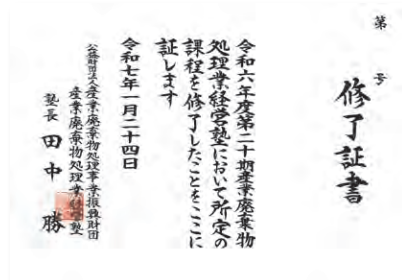 第　号
修了証書
令和六年度第二十期産業廃棄物
処理業経営塾において所定の
課程を修了したことをここに
証します
令和七年一月二十四日
公益財団法人産業廃棄物処理事業振興財団
産業廃棄物処理業経営塾
塾長　田中　勝